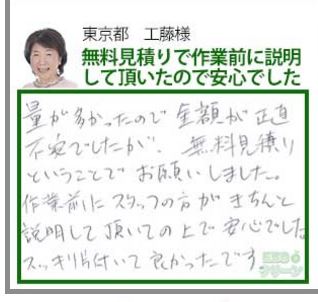 東京都　工藤様
無料見積りで作業前に説明
して頂いたので安心でした
量が多かったので金額が正直
不安でしたが、無料見積り
ということでお願いしました。
作業前にスタッフの方がきちんと
説明して頂いての上で安心でした
スッキリ片付いて良かったです
クリーン